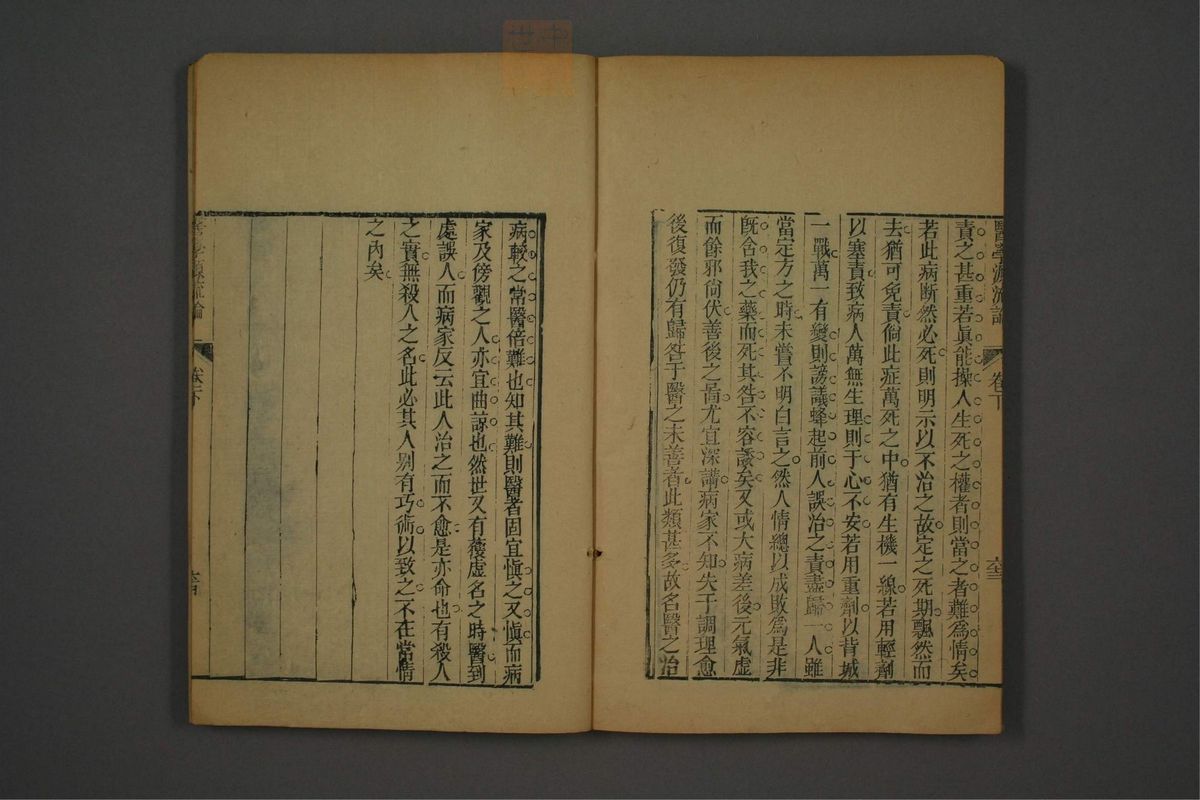 醫學源流論 卷下
責之甚重若眞能操人生死之權者則當之者難爲情矣
若此病斷然必死則明示以不治之故定之死期飄然而
去猶可免責倘此症萬死之中猶有生機一線若用輕劑
以塞責致病人萬無生理則于心不安若用重劑以背城
一戰萬一有變則謗議蜂起前人誤治之責盡歸一人雖
當定方之時未嘗不明白言之然人情總以成敗爲是非
旣含我之藥而死其咎不容諉矣又或大病差後元氣虛
而餘邪尙伏善後之啚尤宜深講病家不知失于調理愈
後復發仍有歸咎于醫之未善者此類甚多故名醫之治
病較之常醫倍難也知其難則醫者固宜愼之又愼而病
家及傍觀之人亦宜曲諒也然世又有獲虛名之時醫到
處誤人而病家反云此人治之而不愈是亦命也有殺人
之實無殺人之名此必其人别有巧術以致之不在常情
之內矣